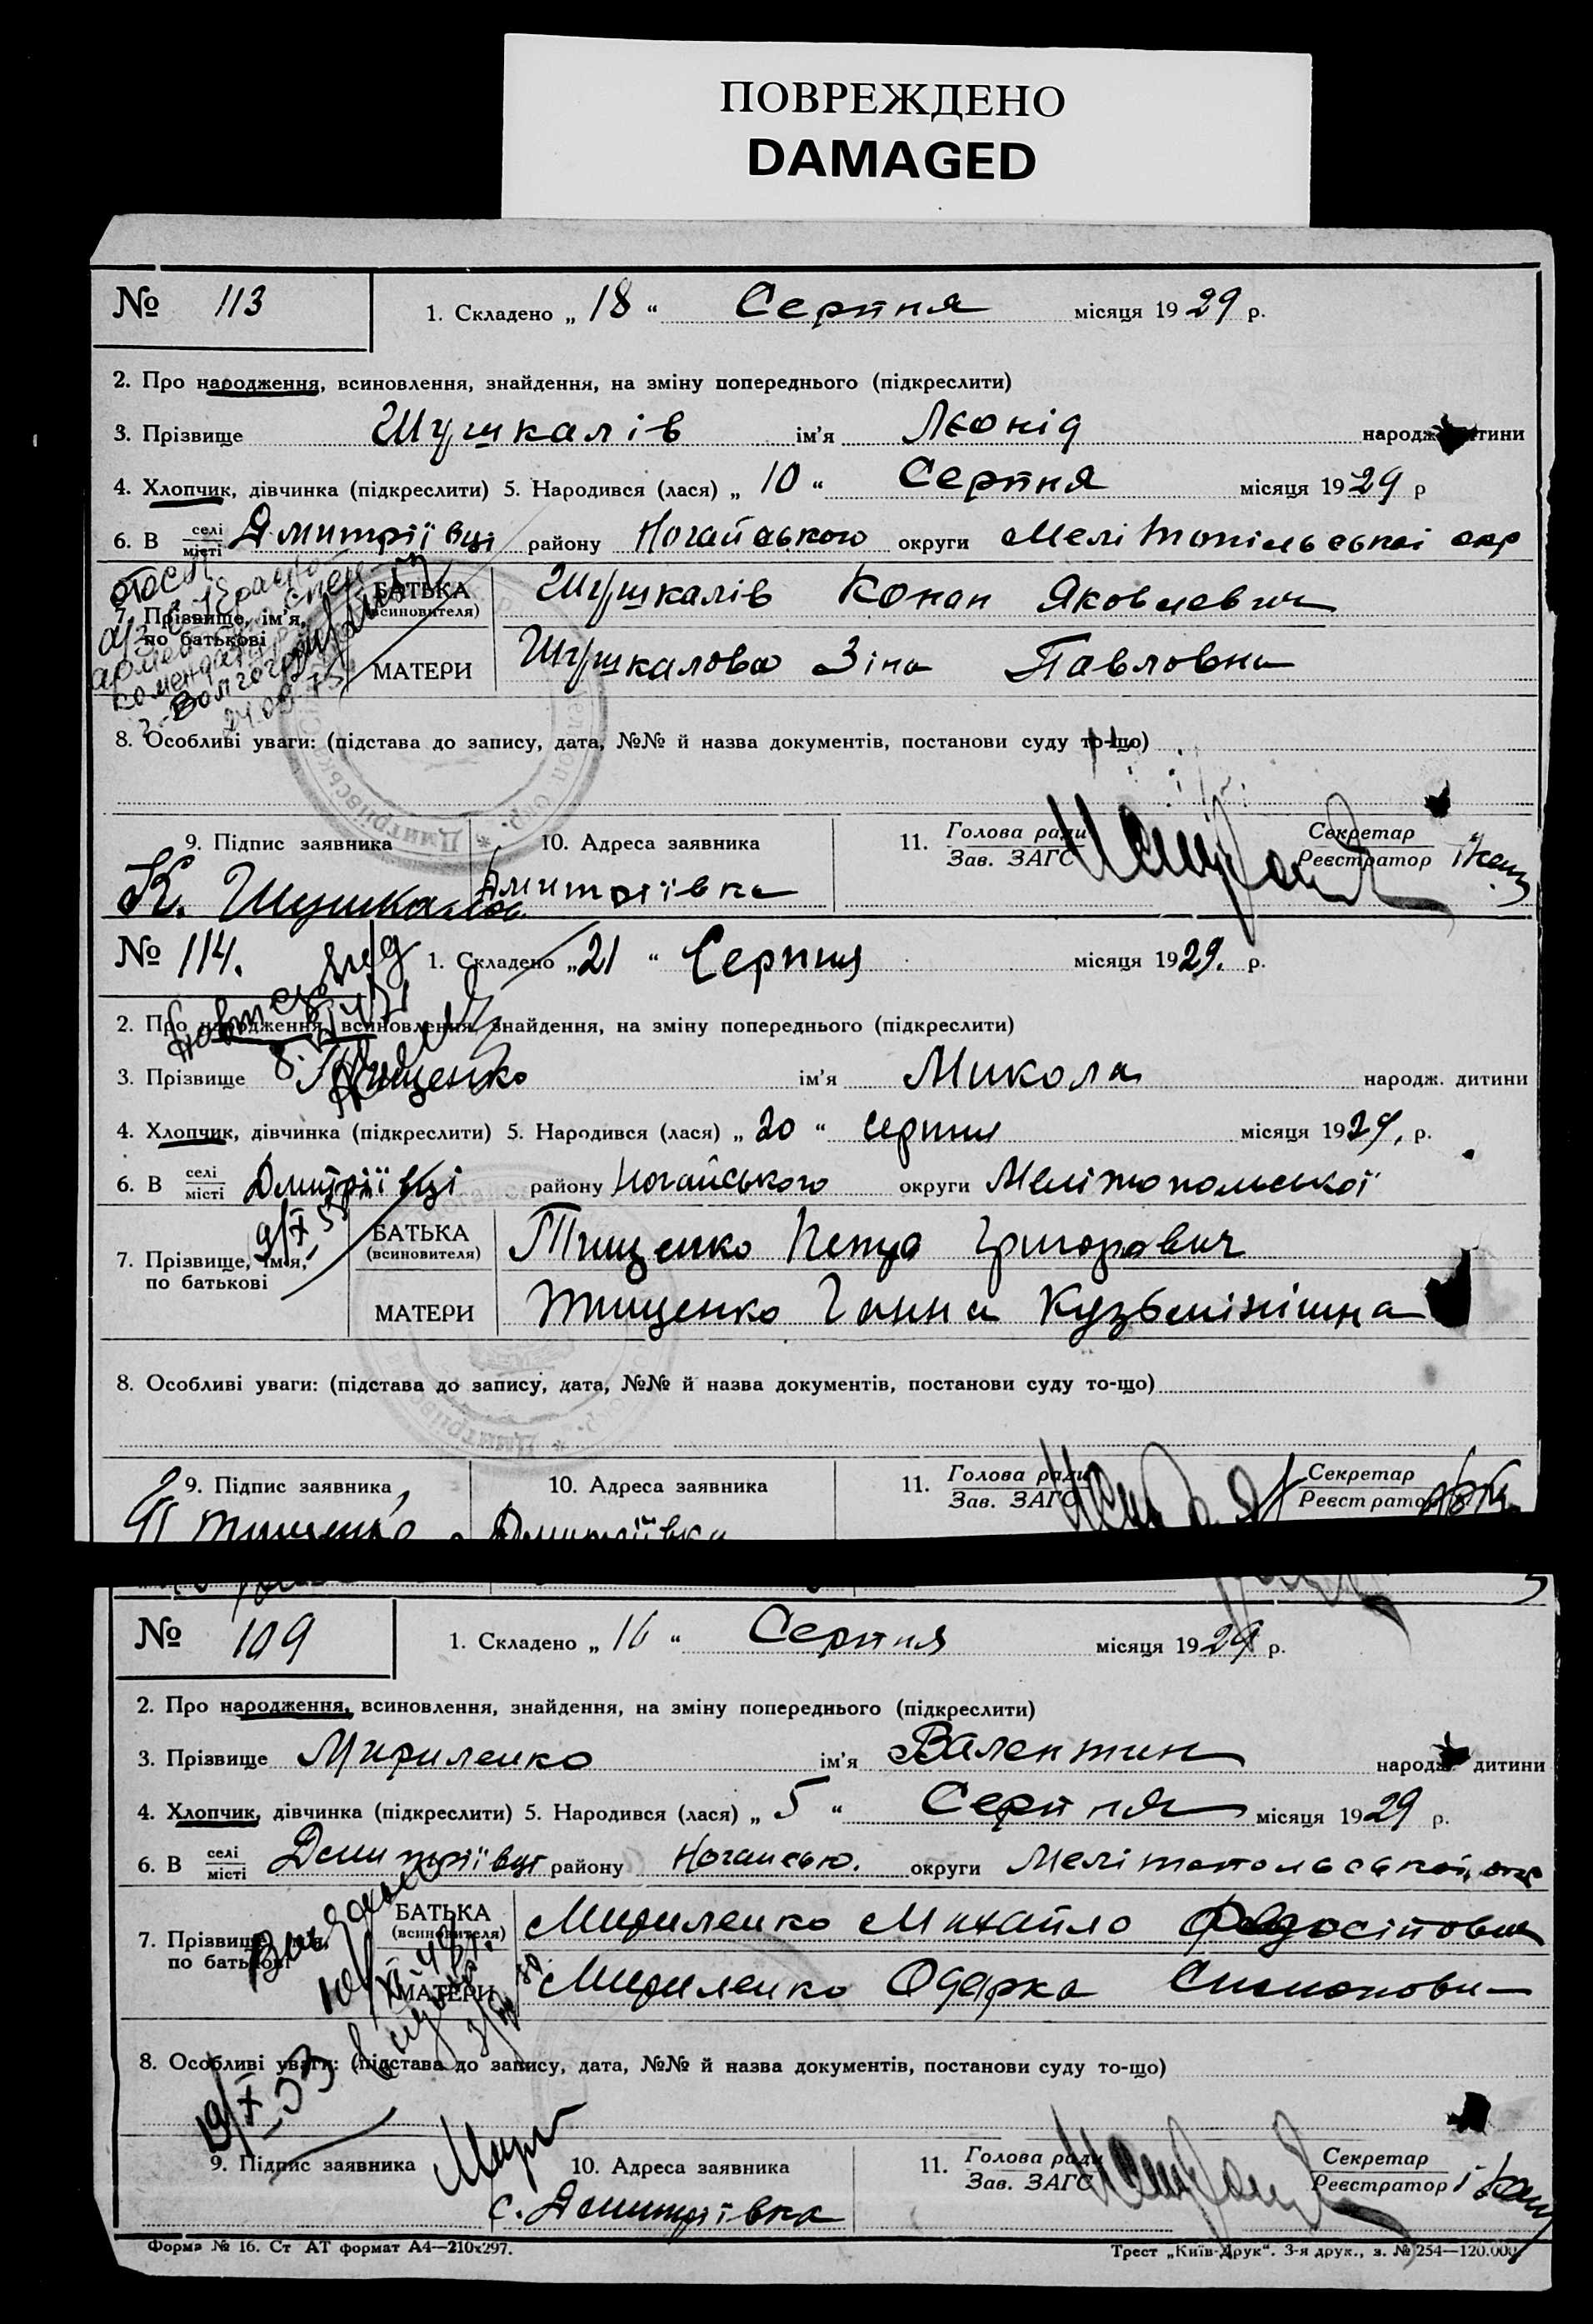 ПОВРЕЖДЕНО
DAMAGED
№ 113
1. Складено „ 18 “ Серпня місяця 1929 р.
2. Про народження, всиновлення, знайдення, на зміну попереднього (підкреслити)
3. Прізвище Шушкалів ім’я Леонід народж дитини
4. Хлопчик, дівчинка (підкреслити) 5. Народився (лася) „ 10 “ Серпня місяця 1929 р
6. В селі місті Дмитріївці району Ногайського округи Мелітопільської окр
7. Прізвище, ім’я, по батькові
БАТЬКА (всиновителя) Шушкалів Конан Яковлевич
МАТЕРИ Шушкалова Зіна Павловна
8. Особливі уваги: (підстава до запису, дата, №№ й назва документів, постанови суду то-що)
9. Підпис заявника
10. Адреса заявника
11. Голова ради Зав. ЗАГС
Секретар Реєстратор
К. Шушкалов
Дмитріївка
№ 114.
1. Складено „ 21 “ Серпня місяця 1929. р.
2. Про народження, всиновлення, знайдення, на зміну попереднього (підкреслити)
3. Прізвище Тищенко ім’я Микола народж. дитини
4. Хлопчик, дівчинка (підкреслити) 5. Народився (лася) „ 20 “ серпня місяця 1929, р.
6. В селі місті Дмитріївці району Ногайського округи Мелітопольської
9/X 55
7. Прізвище, ім’я, по батькові
БАТЬКА (всиновителя) Тищенко Петро Григорович
МАТЕРИ Тищенко Ганна Кузьмінішна
8. Особливі уваги: (підстава до запису, дата, №№ й назва документів, постанови суду то-що)
9. Підпис заявника
10. Адреса заявника
11. Голова ради Зав. ЗАГС
Секретар Реєстратор
П Тищенко
Дмитріївка
№ 109
1. Складено „ 16 “ Серпня місяця 1929 р.
2. Про народження, всиновлення, знайдення, на зміну попереднього (підкреслити)
3. Прізвище Мириленко ім’я Валентин народж дитини
4. Хлопчик, дівчинка (підкреслити) 5. Народився (лася) „ 5 “ Серпня місяця 1929 р.
6. В селі місті Дмитріївці району Ногайсько. округи Мелітопольської окр
7. Прізвище, ім’я, по батькові
БАТЬКА (всиновителя) Мириленко Михайло Федосітович
МАТЕРИ Мириленко Одарка
8. Особливі уваги: (підстава до запису, дата, №№ й назва документів, постанови суду то-що)
19/X-53
9. Підпис заявника
10. Адреса заявника
11. Голова ради Зав. ЗАГС
Секретар Реєстратор
с. Дмитріївка
Форма № 16. Ст АТ формат А4—210х297.
Трест „Київ-Друк“. 3-я друк., з. № 254—120.000